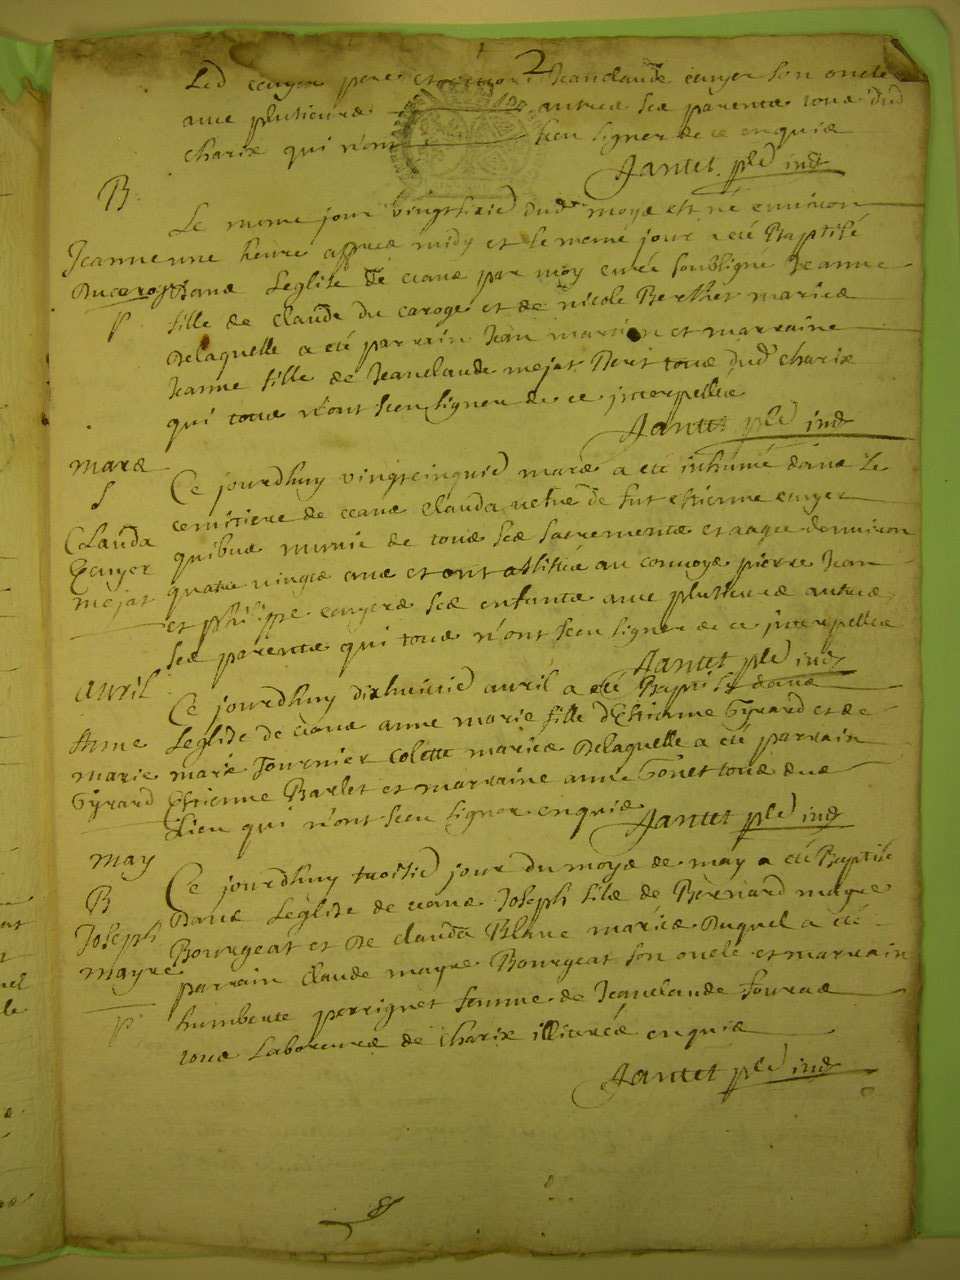 2
Led ecuyer pere et encore Jeanclaude ecuyer son oncle
avec plusieurs autres ses parents tous dud
charix qui n'ont sceu signer de ce enquis
Jantet pbre ind
B
Le meme jour vingthuied dud moys est né environ
Jeanne une heure apprès midy et le meme jour a eté Baptisé
Ducaroge Dans Leglise de ceans par moy curé soubsigné Jeanne
p fille de claude du caroge et de nicole Berthet mariés
Delaquelle a eté parrain Jean martin et marraine
Jeanne fille de Jeanclaude mejat tous dud charix
qui tous n'ont sceu signer de ce interpellés
Jantet pbre ind
mars
S
Ce jourdhuy vingtcinquied mars a eté inhumé dans le
Clauda cemitiere de ceans Clauda vefue de fut Estienne ecuyer
Ecuyer quibus munie de tous ses sacrements et aagee denviron
mejat quatre vingts ans et ont assistés au convoys pierre Jean
et philippe ecuyers ses enfants avec plusieurs autres
ses parents qui tous n'ont sceu signer de ce interpellés
Jantet pbre ind
avril
Ce jourdhuy dixhuitied avril a eté Baptisé dans
Anne Leglise de ceans anne marie fille d'Estienne Gyrard et de
marie marie Tournier Colette mariés Delaquelle a eté parrain
Gyrard Estienne Barlet et marraine anne Gonet tous dud
Lieu qui n'ont sceu signer enquis
Jantet pbre ind
may
Ce jourdhuy troisied jour du moys de may a eté Baptisé
B Dans Leglise de ceans Joseph fils de Bernard mayre
Joseph Bourgeat et De clauda Blanc mariés Duquel a eté
mayre parrain claude mayre Bourgeat son oncle et marrain
p humberte perrignet femme de Jeanclaude
tous Laboureurs de Charix illiterés enquis
Jantet pbre ind